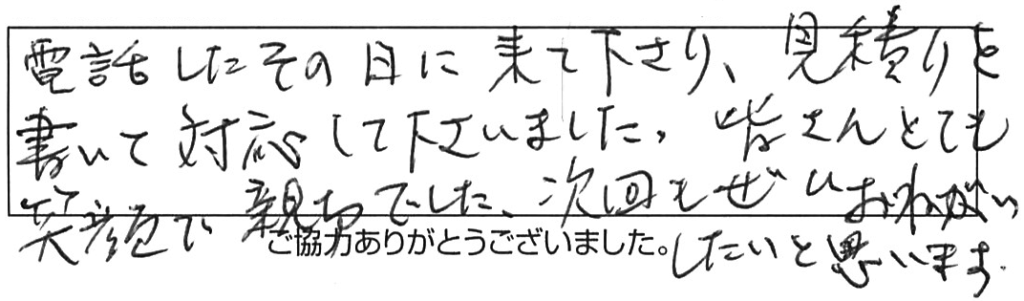 電話したその日に来て下さり、見積りを
書いて対応して下さいました。皆さんとても
笑顔で親切でした、次回もぜひおねがい
したいと思います。
ご協力ありがとうございました。